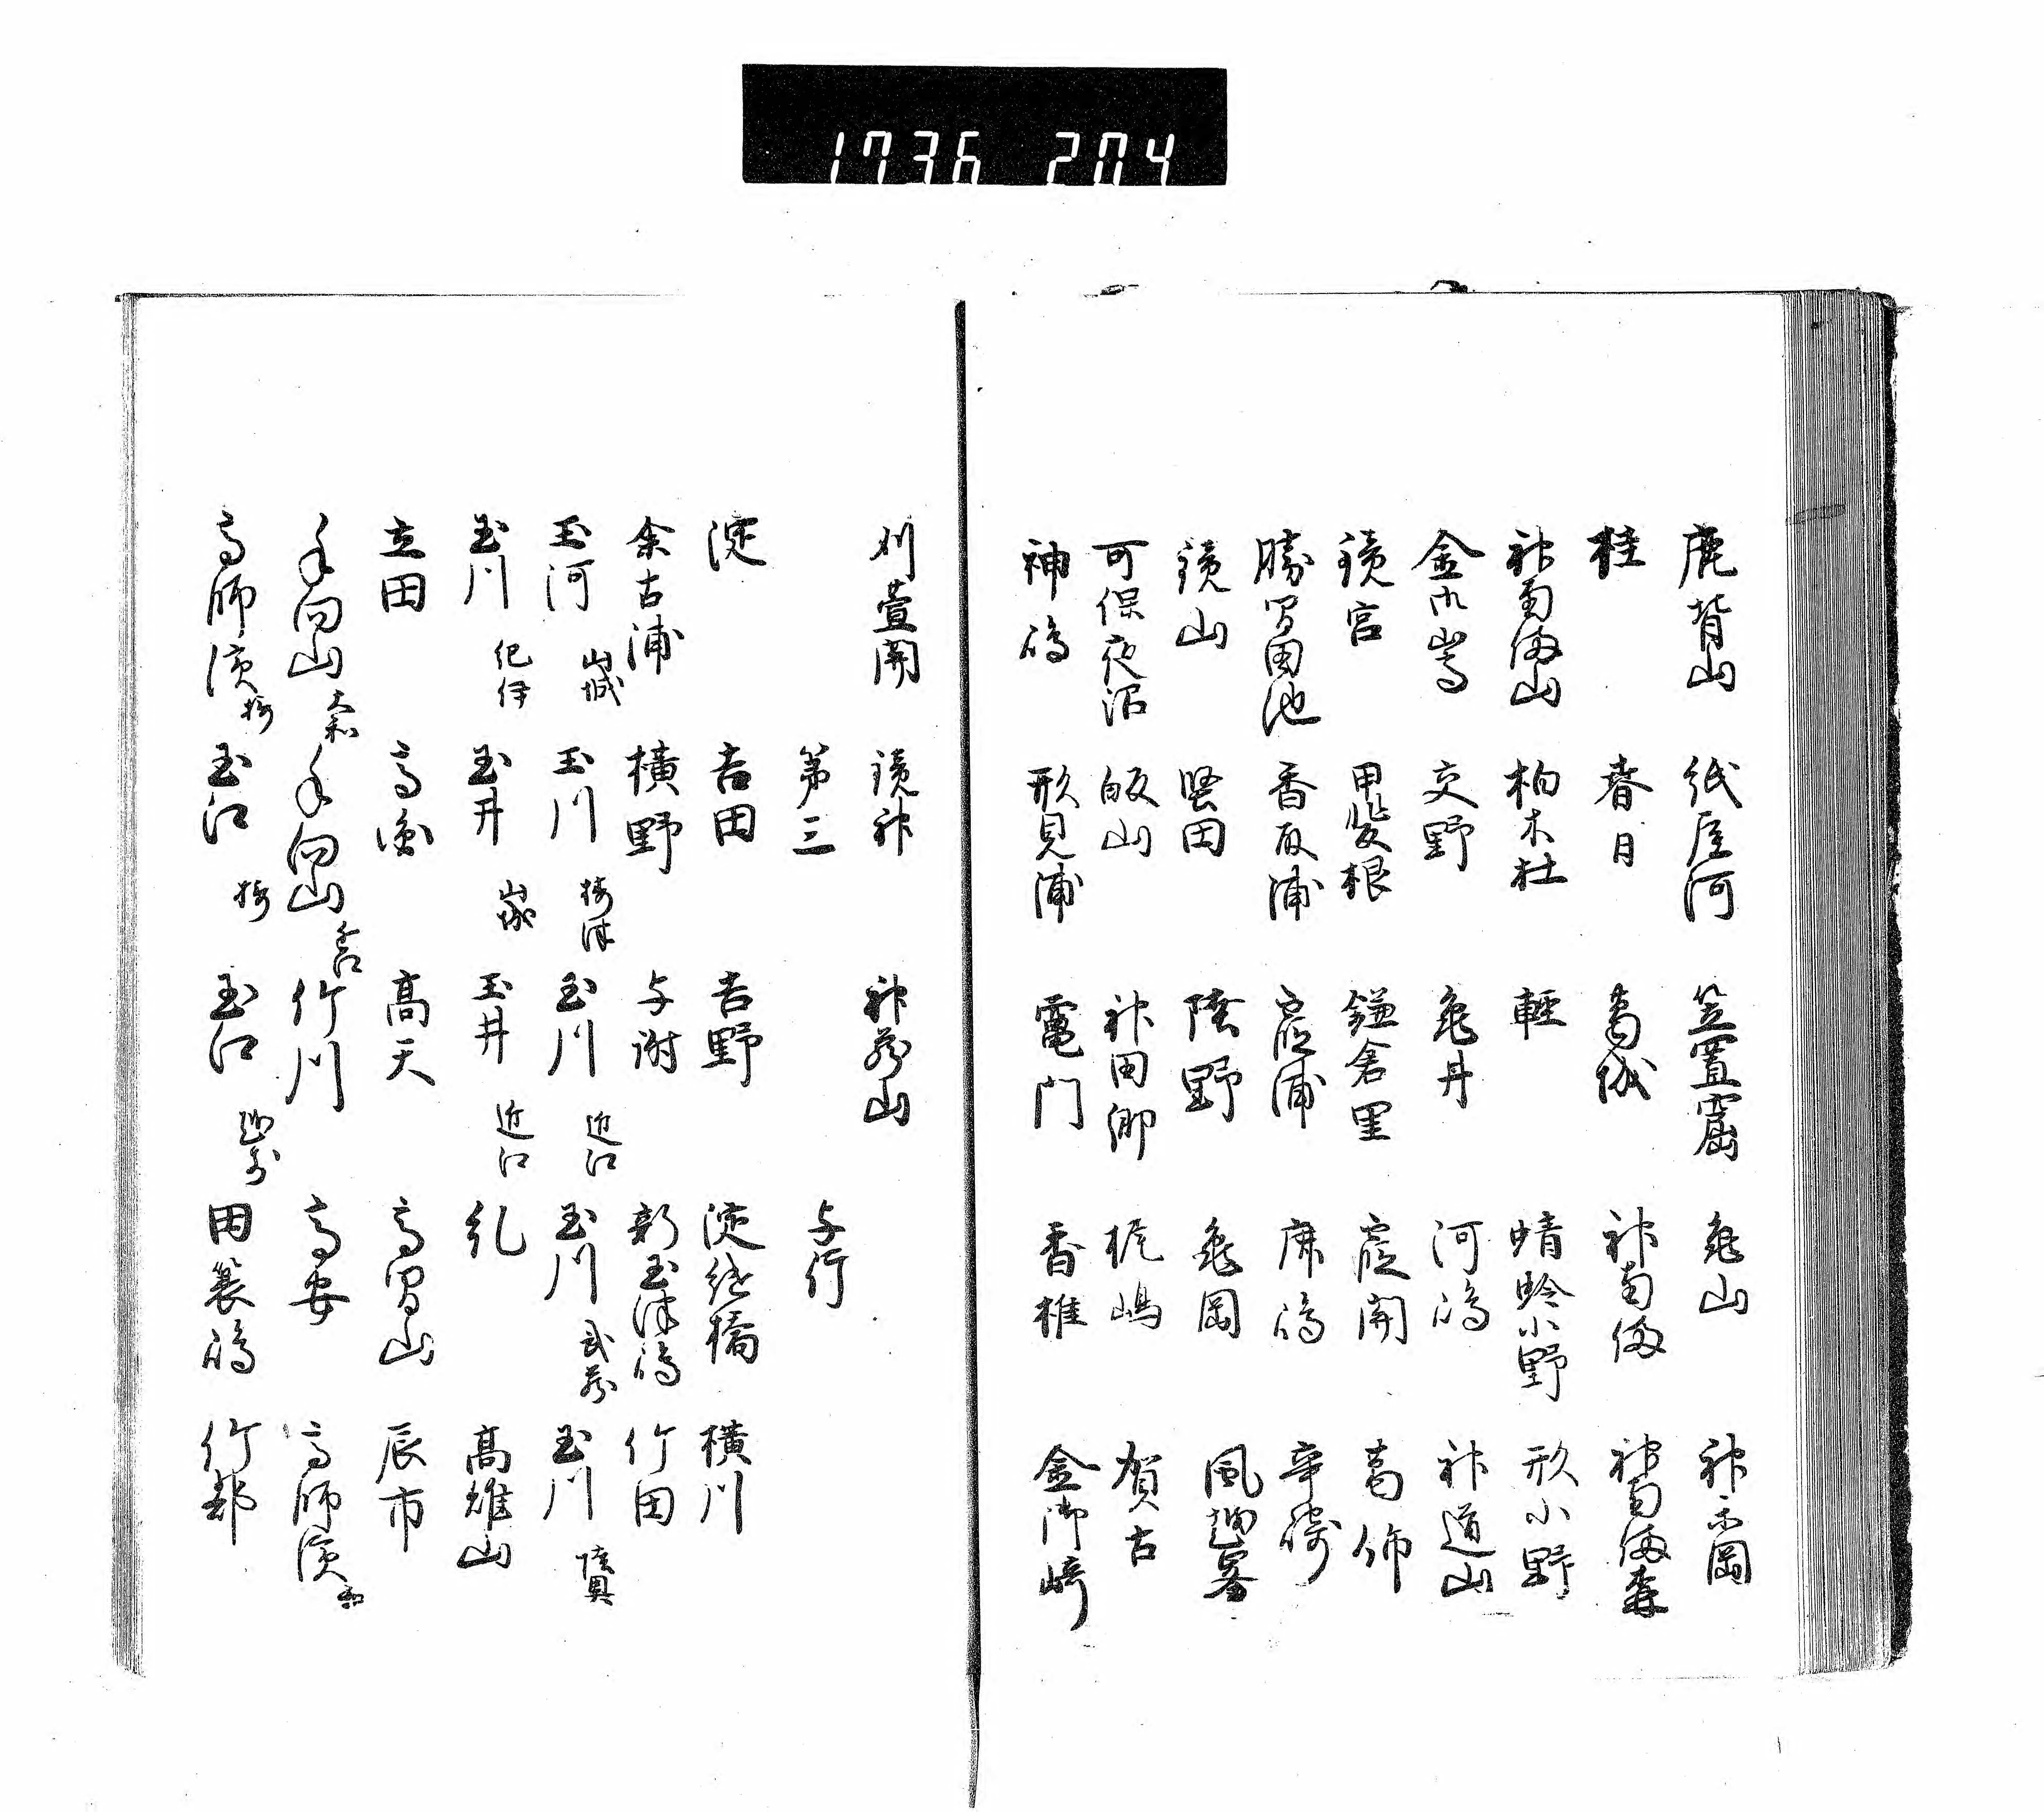 1736 204
鹿背山 紙屋河 笠置窟 亀山 神木岡
桂 春日 葛城 神南備 神南備森
神南備山 柏木杜 輕 蜻蛉小野 形小野
金御嵩 交野 亀井 河嶋 神道山
鏡宮 甲斐根 鎌倉里 霞関 葛飾
勝間田池 香取浦 霞浦 鹿嶋 辛崎
鏡山 堅田 蔭野 亀岡 風越峯
可保夜沼 帰山 神田郷 梶嶋 賀古
神嶋 形見浦 竃門 香椎 金御崎
刈萱関 鏡神 神蔵山
第三 与行
淀 吉田 吉野 淀継橋 横川
余古浦 横野 与謝 新玉津嶋 竹田
玉河 山城 玉川 摂津 玉川 近江 玉川 武蔵 玉川 陸奥
玉川 紀伊 玉井 山城 玉井 近江 糺 高雄山
立田 高圓 高天 高間山 辰市
手向山 大和 手向山 竹川 高安 高師濱
高師濱 摂 玉江 摂 玉江 越前 田簑嶋 竹都